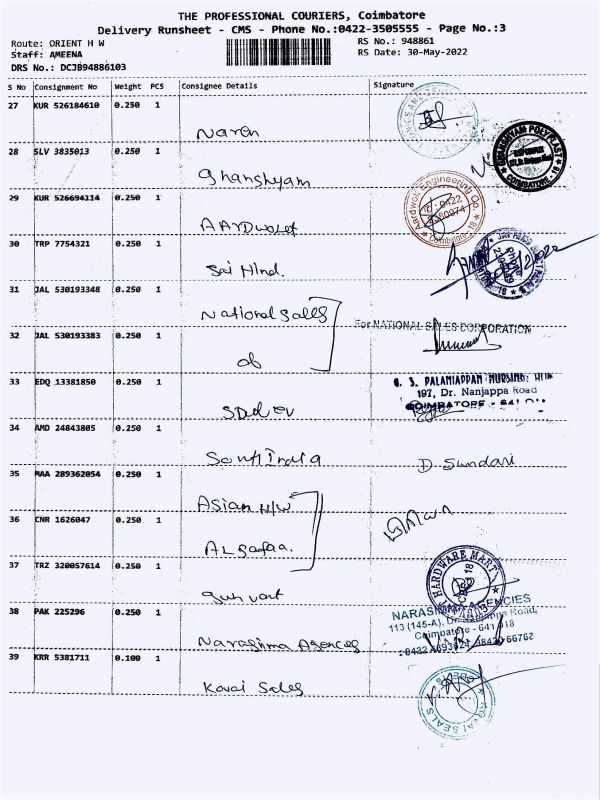 THE PROFESSIONAL COURIERS, Coimbatore
Delivery Runsheet - CMS - Phone No.:0422-3505555 - Page No.:3
Route: ORIENT H W
RS No.: 948861
Staff: AMEENA
RS Date: 30-May-2022
DRS No.: DCJB94886103
S No Consignment No Weight PCS Consignee Details Signature
27 KUR 526184610 0.250 1
Naren
28 SLV 3835013 0.250 1
Ghanshyam
GHANSHYAM POLYPLAST
COIMBATORE - 18
29 KUR 526694114 0.250 1
Aardwolf Engineering Co.
Coimbatore - 18
30 TRP 7754321 0.250 1
Sai Hind.
31 JAL 530193348 0.250 1
National Sales
For NATIONAL SALES CORPORATION
32 JAL 530193383 0.250 1
33 EDQ 13381850 0.250 1
G. S. PALANIAPPAN NURSING HOME
197, Dr. Nanjappa Road
COIMBATORE - 641 018
34 AMD 24843805 0.250 1
South India
D Sundari
35 MAA 289362054 0.250 1
Asian H/W
36 CNR 1626047 0.250 1
37 TRZ 320057614 0.250 1
HARDWARE MART
38 PAK 225296 0.250 1
Narasima Agences
NARASIMHA AGENCIES
113 (145-A), Dr. Nanjappa Road,
Coimbatore - 641 018
39 KRR 5381711 0.100 1
Kovai Sales
KOVAI SEALS